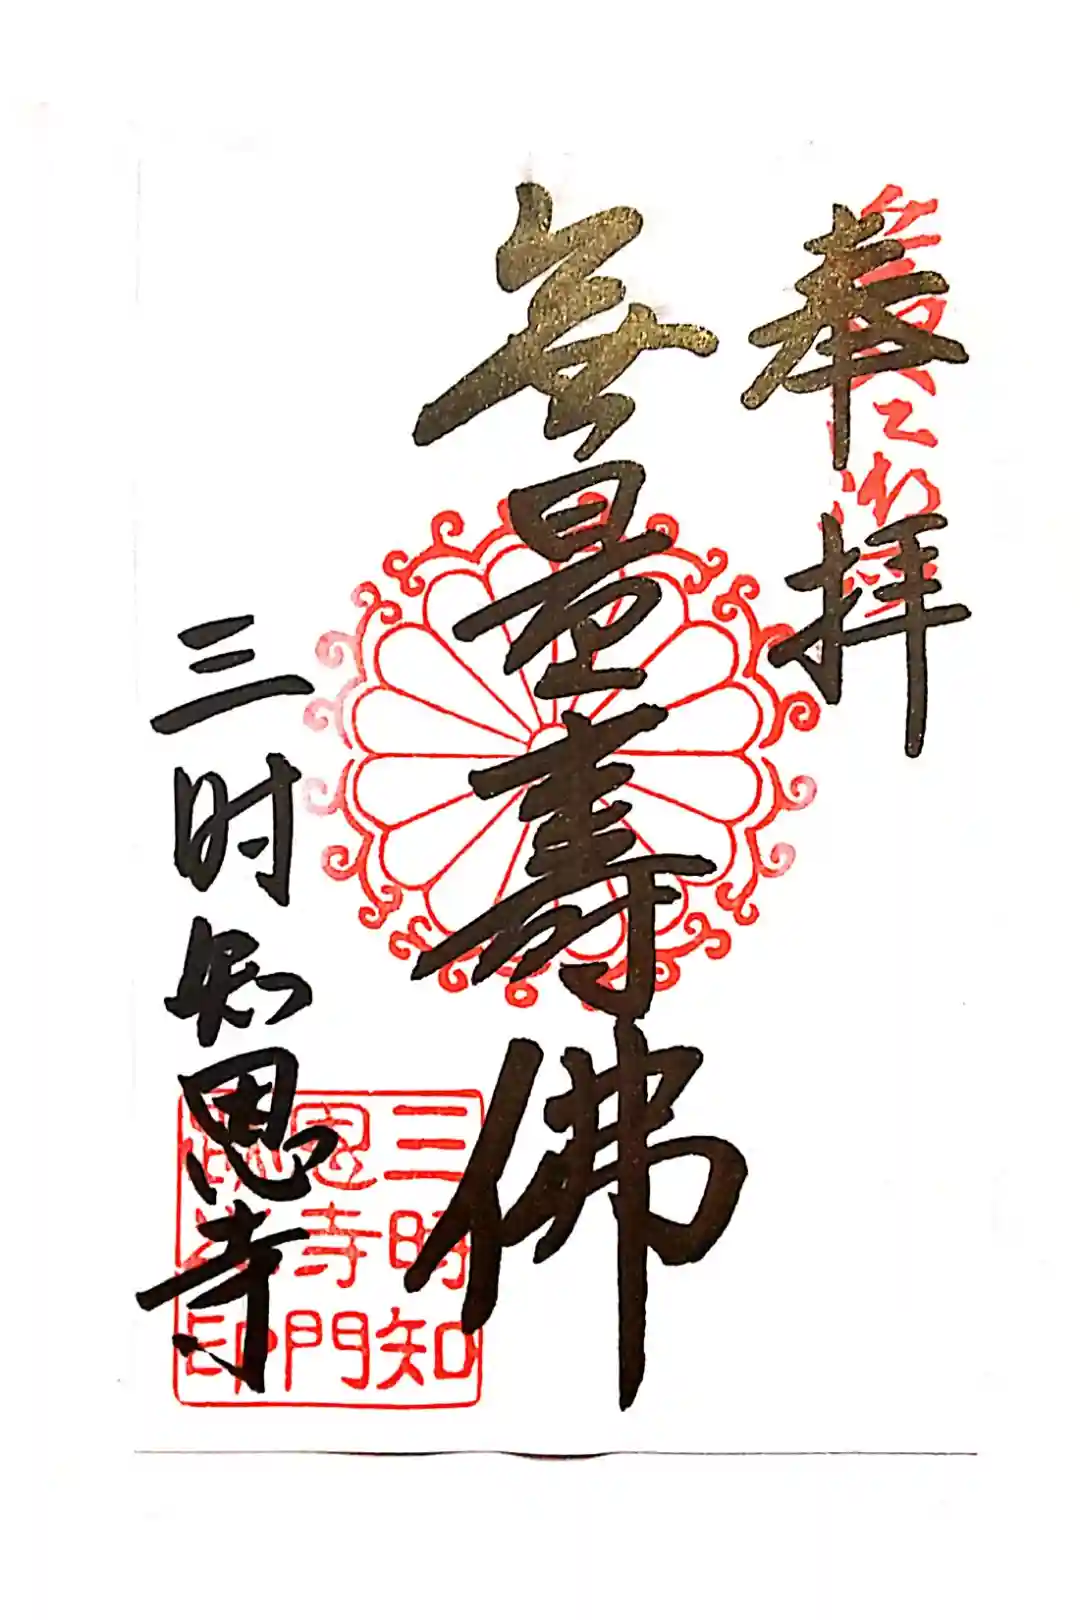 奉拝
無量壽佛
三时知恩寺
三時知
恩寺門
印